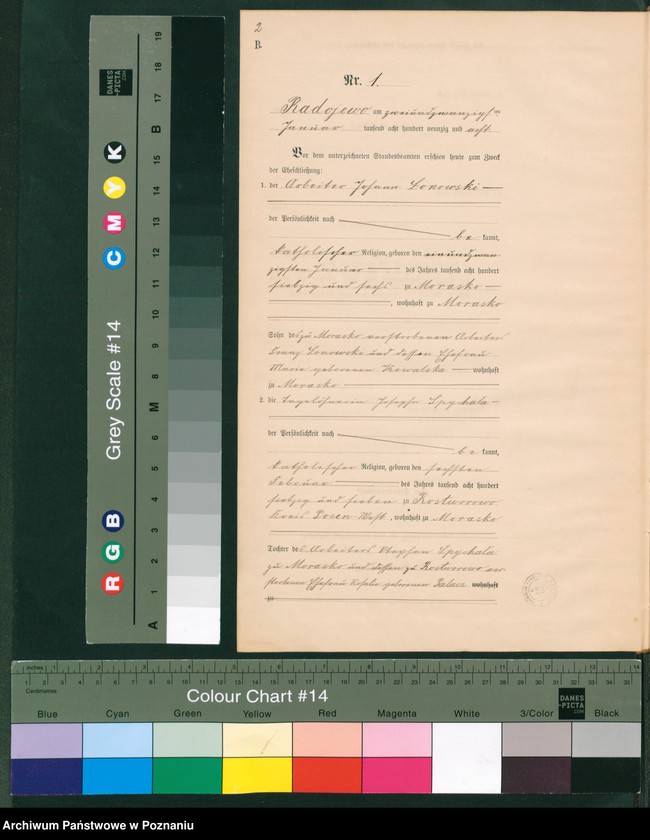 2
B.
Nr. 1.
Radojewo am zweiundzwanzigsten
Januar tausend acht hundert neunzig und acht
Vor dem unterzeichneten Standesbeamten erschien heute zum Zweck
der Eheschließung:
1. der Arbeiter Johann Lonowski
der Persönlichkeit nach
be kannt,
katholischer Religion, geboren den einundzwan
zigsten Januar des Jahres tausend acht hundert
siebzig und sechs zu Morasko
, wohnhaft zu Morasko
Sohn des zu Morasko verstorbenen Arbeiters
Franz Lonowski und dessen Ehefrau
Maria geborenen Kowalska wohnhaft
zu Morasko
2. die Josepha Spychala
der Persönlichkeit nach
be kannt,
katholischer Religion, geboren den sechsten
Februar des Jahres tausend acht hundert
siebzig und sieben zu Rostworowo
Kreis Posen-West, wohnhaft zu Morasko
Tochter des Arbeiters Stephan Spychala
zu Morasko und dessen zu Rostworowo ver
storbenen Ehefrau Rosalie geborenen Palacz wohnhaft
zu
Grey Scale #14
DANES
-PICTA
.COM
R G B C M Y K
A 1 2 3 4 5 6 M 8 9 10 11 12 13 14 15 B 17 18 19
inches 1 2 3 4 5 6 7 8 9 10 11 12 13 14
Centimetres
Colour Chart #14
DANES
-PICTA
.COM
Blue Cyan Green Yellow Red Magenta White 3/Color Black
Archiwum Państwowe w Poznaniu